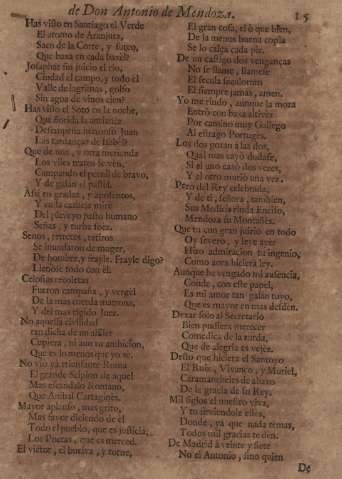 de Don Antonio de Mendoza. 15
Has visto en Santiago el Verde
El aroma de Aranjuez,
Saco de la Corte, y
Que basa en cada
Josaphat sin juicio el rio,
Ciudad el campo, y todo el
Valle de lagrimas, golfo
Sin agua de vinos cien?
Has visto el Soto en la noche,
Que florida la
Juan
Las tardanças de Isabel?
Que de una, y otra merienda
Los viles tratos se ven,
Campando el pernil de bravo,
Y de galan el pastel.
Assi en gradas, y aposentos,
Y en la cazuela miré
Del justo humano
Setas, y turba soez.
Senos, retretes, retiros
Se inundaron de muger,
De hombre, y frayle. Frayle digo?
Llenose todo con él.
Celosias
Fueron campaña, y vergel
De la mas cuerda
Y del mas rigido Juez.
No aquella civilidad
tan dicha de mi
Cupiera, ni aun tu anhelon,
Que es lo menos que yo sé.
No vio la triunfante Roma
El grande Scipion de aquel
Mas escandalo Romano,
Que Anibal Cartaginés.
Mayor aplauso, mas grito,
Mas favor diciendo de él
Todo el pueblo, que es justicia,
Los Poetas, que es merced.
El victor, el y torne,
El gran cosa, el ò que bien,
De la menos buena copla
Se lo calça cada pie.
De un castigo dos venganças
No se llame, llamese
El secula seculorum
El siempre jamas, amen.
Yo me rindo, aunque la moza
Entrò con basa
Por camino muy Gallego
Al estrago Portugés.
Los dos gozan à las dos,
Qual mas cayò dudase,
Si el uno cayò dos vezes,
Y el otro murió una vez.
Pero del Rey celebrada,
Y de ti, señora, tambien,
Sus Medicis rinda Enciso,
Mendoza su Montañés.
Que tu con gran juicio en todo
Or severo, y leve ayer
Hizo admiracion tu ingenio,
Como aora hiciera ley.
Aunque he vengado mi ausencia,
Conde, con este papel,
Es mi amor tan galan tuyo,
Que es mayor en mas desden.
Dexar solo al Secretario
Bien pudiera merecer
Comedica de la zurda,
Que de alegria es vejez.
Desto que hiciera el Santoyo
El Ruiz, Vivanco, y Muriel,
Caramancheles de abaxo
De la gracia de su Rey.
Mil siglos el nuestro viva,
Y tu sirviendole estés,
Donde, ya que nada temas,
Todos mil gracias te den.
De Madrid à veinte y siete
No el Antonio, sino quien
De